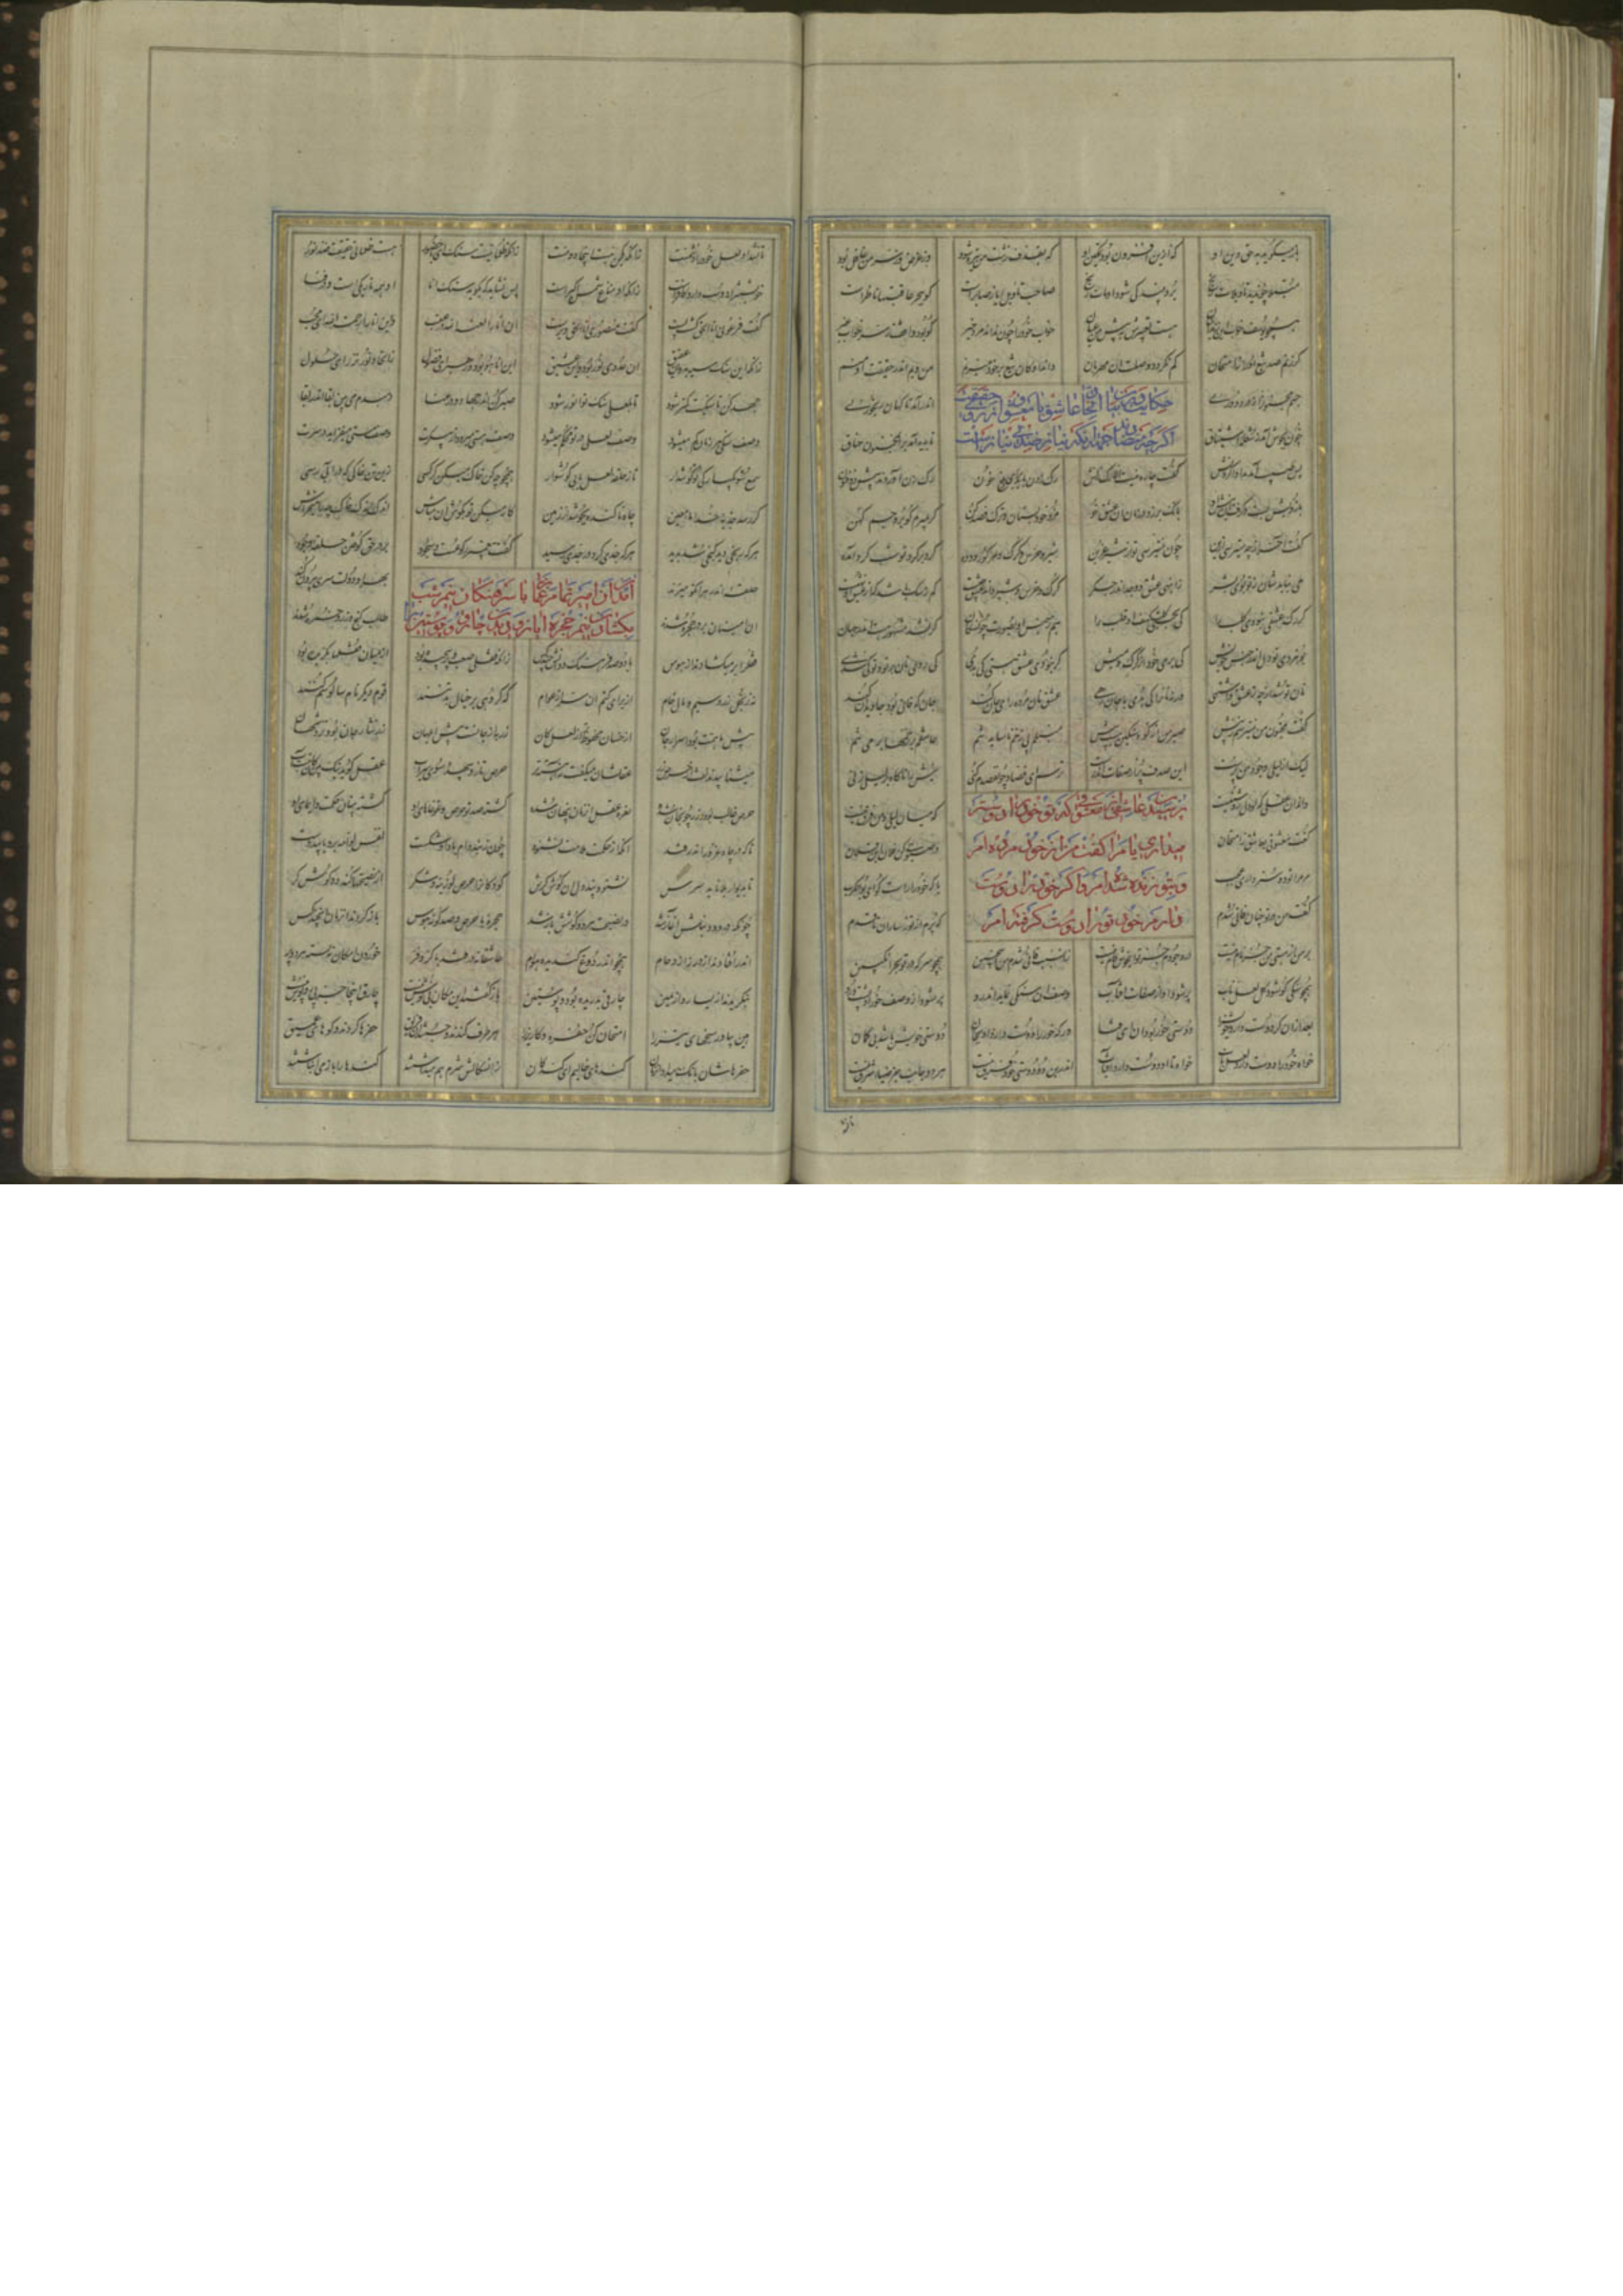 باز میگوید به حق دین او که ازین افزون بود تمکین او که بقذف زشت من تیره شود وز غرض وز سر من غافل بود
مبتلا چون دید تاویلات رنج برد بیند کی شود او مات رنج صاحب تاویل ایاز صابرست کو ببحر عاقبتها ناظرست
همچو یوسف خواب این زندانیان هست تعبیرش به پیش او عیان خواب خود را چون نداند مرد خیر کو بود واقف ز سر خواب غیر
گر زنم صد تیغ او را ز امتحان کم نگردد وصلت آن مهربان داند او کان تیغ بر خود میزنم من ویم اندر حقیقت او منم
حکایت در بیان اتحاد عاشق با معشوق از روی حقیقت
اگرچه متضادند از آنکه نیاز ضد بی نیازیست
جسم مجنون را ز رنج دوریی اندر آمد ناگهان رنجوریی
خون بجوش آمد ز شعله اشتیاق تا پدید آمد بر آن مجنون خناق
پس طبیب آمد بدارو کردنش گفت چاره نیست هیچ از رگ زنش رگ زدن باید برای دفع خون
بازوش بست و گرفت آن نیش او بانگ بر زد در زمان آن عشق خو مزد خود بستان و ترک فصد کن گر بمیرم گو برو جسم کهن
گفت آخر از چه میترسی ازین چون نمیترسی تو از شیر عرین شیر و خرس و گرگ و هر گور و دده گرد بر گرد تو شب گرد آمده
می نیاید شان ز تو بوی بشر ز انبهی عشق و وجد اندر جگر گرگ و خرس و شیر داند عشق چیست کم ز سگ باشد که از عشق او عمیست
گر رگ عشقی نبودی کلب را کی بجستی کلب کهفی قلب را هم ز جنس او بصورت چون سگان گر نشد مشهور هست اندر جهان
بو نبردی تو دل اندر جنس خویش کی بری بوی دل از گرگ و میش گر نبودی عشق هستی کی بدی کی زدی نان بر تو و تو کی شدی
نان تو شد از چه ز عشق و اشتهی ورنه نان را کی بدی تا جان رهی عشق نان مرده را می جان کند جان که فانی بود جاویدان کند
گفت مجنون من نمیترسم ز نیش صبر من از کوه سنگین هست بیش منبلم بی زخم ناساید تنم عاشقم بر زخمها بر می تنم
لیک از لیلی وجود من پرست این صدف پر از صفات آن درست ترسم ای فصاد چون فصدم کنی نیش را ناگاه بر لیلی زنی
داند آن عقلی که او دل روشنیست که میان لیلی و من فرق نیست
پرسید معشوقی از عاشق که تو خود را دوستر
میداری یا مرا گفت من از خود مرده ام
و بتو زنده شده ام
گفت معشوقی بعاشق ز امتحان در صبوحی کای فلان ابن فلان
مر مرا تو دوستر داری عجب یا که خود را راست گو یا ذا الکرب
گفت من در تو چنان فانی شدم که پرم از تو ز ساران تا قدم
بر من از هستی من جز نام نیست در وجودم جز تو ای خوش کام نیست زان سبب فانی شدم من این چنین همچو سرکه در تو بحر انگبین
همچو سنگی کو شود کل لعل ناب پر شود او از صفات آفتاب وصف آن سنگی نماند اندرو پر شود از وصف خور او پشت و رو
بعد از آن گر دوست دارد خویش را دوستی خور بود آن ای فتا ور که خور را دوست دارد او بجان دوستی خویش باشد بی گمان
خواه خود را دوست دارد لعل ناب خواه تا او دوست دارد آفتاب اندرین دو دوستی خود فرق نیست هر دو جانب جز ضیای شرق نیست
تا نشد او لعل خود را دشمنست زانکه یک من نیست اینجا دو منست زانکه ظلمانیست سنگ ای با حضور هست ظلمانی حقیقت ضد نور
خویشتن را دوست دارد کافرست زانکه او مناع شمس اکبرست پس نشاید که بگوید سنگ انا او همه تاریکی است و در فنا
گفت فرعونی انا الحق گشت پست گفت منصوری انا الحق و برست آن انا را لعنة الله در عقب وین انا را رحمة الله ای محب
زانکه او سنگ سیه بد این عقیق آن عدوی نور بود و این عشیق این انا هو بود در سر ای فضول ز اتحاد نور نز رای حلول
جهد کن تا سنگیت کمتر شود تا بلعلی سنگ تو انور شود صبر کن اندر جهاد و در عنا دم بدم می بین بقا اندر فنا
وصف سنگی هر زمان کم میشود وصف لعلی در تو محکم میشود وصف هستی میرود از پیکرت وصف مستی میفزاید در سرت
سمع شو یکبارگی تو گوش وار تا ز حلقه لعل یابی گوشوار همچو چه کن خاک میکن گر کسی زین تن خاکی که در آبی رسی
گر رسد جذبه خدا ماء معین چاه ناکنده بجوشد از زمین کار میکن تو بگوش آن مباش اندک اندک خاک چه را میتراش
هر که رنجی دید گنجی شد پدید هر که جدی کرد در جدی رسید گفت پیغمبر رکوعست و سجود بر در حق کوفتن حلقه وجود
حلقه آن در هر آنکو میزند بهر او دولت سری بیرون کند
آمدن آن امیر نمام با سرهنگان نیم شب
بگشادن حجره ایاز و دیدن چارق و پوستین
آن امینان بر در حجره شدند طالب گنج و زر و خمره شدند
قفل را بر میگشادند از هوس با دو صد فرهنگ و دانش چند کس زانکه قفل صعب و پیچیده بود از میان قفلها بگزیده بود
نز بخل سیم و مال و زر خام از برای کتم آن سر از عوام که گروهی بر خیال بد تنند قوم دیگر نام سالوسم کنند
پیش با همت بود اسرار جان از خسان محفوظتر از لعل کان زر به از جانست پیش ابلهان زر نثار جان بود نزد شهان
میشتابیدند تفت از حرص زر عقلشان میگفت نی آهسته تر حرص تازد بیهده سوی سراب عقل گوید نیک بین کان نیست آب
حرص غالب بود و زر چون جان شده نعره عقل آن زمان پنهان شده گشته صد تو حرص و غوغاهای او گشته پنهان حکمت و ایمای او
تا که در چاه غرور اندر فتد آنگه از حکمت ملامت بشنود چون ز بند دام باد او شکست نفس لوامه برو یابید دست
تا بدیوار بلا ناید سرش نشنود پند دل آن گوش کرش کودکان را حرص لوزینه و شکر از نصیحتها کند دو گوش کر
چونکه درد دنبلش آغاز شد در نصیحت هر دو گوشش باز شد حجره را با حرص و صد گونه هوس باز کردند آن زمان آن چند کس
اندر افتادند از در ز ازدحام همچو اندر دوغ گندیده هوام عاشقانه در فتد با کر و فر خورد امکان نی و بسته هر دو پر
بنگریدند از یسار و از یمین چارقی بدریده بود و پوستین باز گفتند این مکان بی نوش نیست چارق اینجا جز پی روپوش نیست
هین بیاور سیخهای تیز را امتحان کن حفره و کاریز را هر طرف کندند و جستند آن فریق حفرها کردند و گوهای عمیق
حفرهاشان بانگ میداد آن زمان کندهای خالییم ای کندگان زان سگالش شرم هم میداشتند کندها را باز می انباشتند